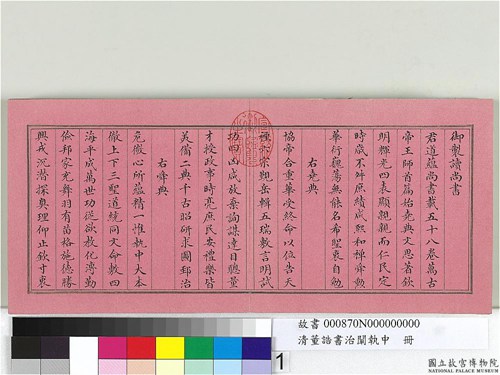 御製讀尚書
君道蘊尚書載五十八卷萬古
帝王師首篇始堯典文思著欽
明輝光四表顯親親而仁民定
時歲不舛庶績咸熙和禪舜勳
華衍巍蕩無能名希聖衷自勉
右堯典
協帝合重華受終命以位告天
禋祀崇覲岳輯五瑞敷言明試
功四凶咸放棄詢謀達目聰量
才授政事時亮庶民安禮樂皆
美備二典千古昭研求圖郅治
右舜典
危微心所蘊精一惟執中大本
徹上下三聖道統同文命敷四
海平成萬世功從欲敷化溥勤
儉邦家光舞羽有苗格施德勝
興戎沉潛探奧理仰止欽寸衷
故書 000870N000000000
清董誥書治闡執中 冊
1
國立故宮博物院
NATIONAL PALACE MUSEUM